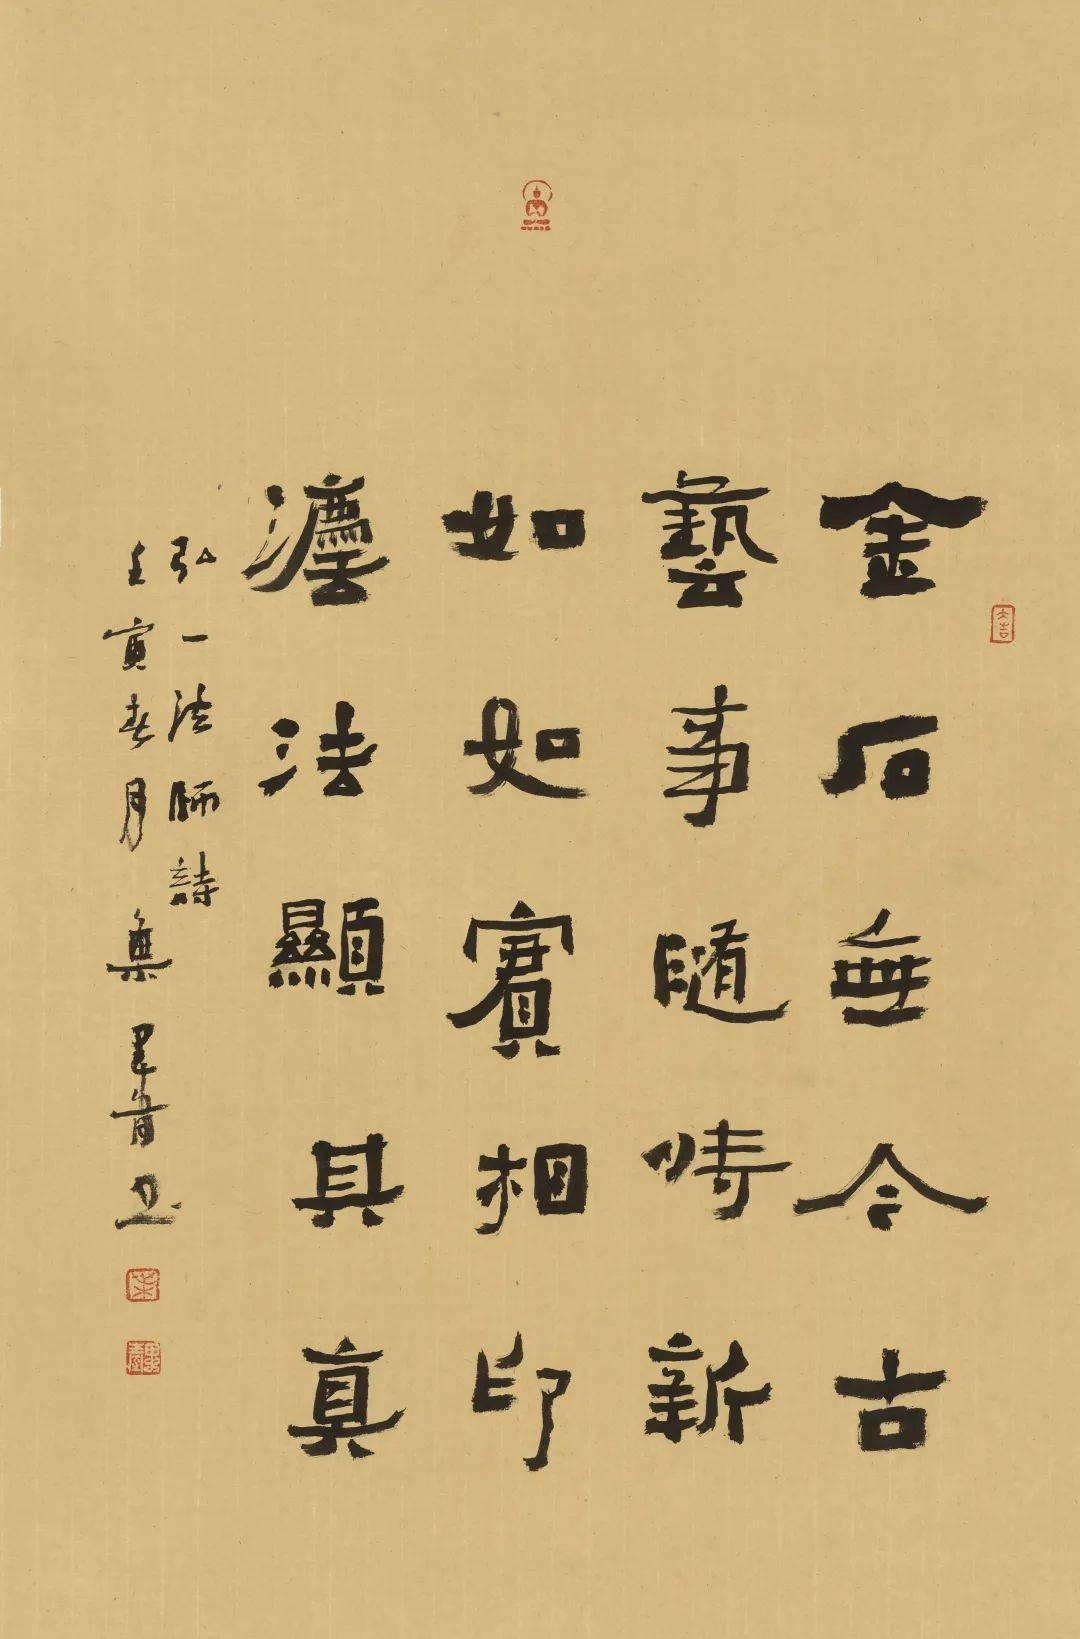 金石無今古
藝事隨時新
如如實相印
灋法顯其真
弘一法師詩
壬寅春月
大吉